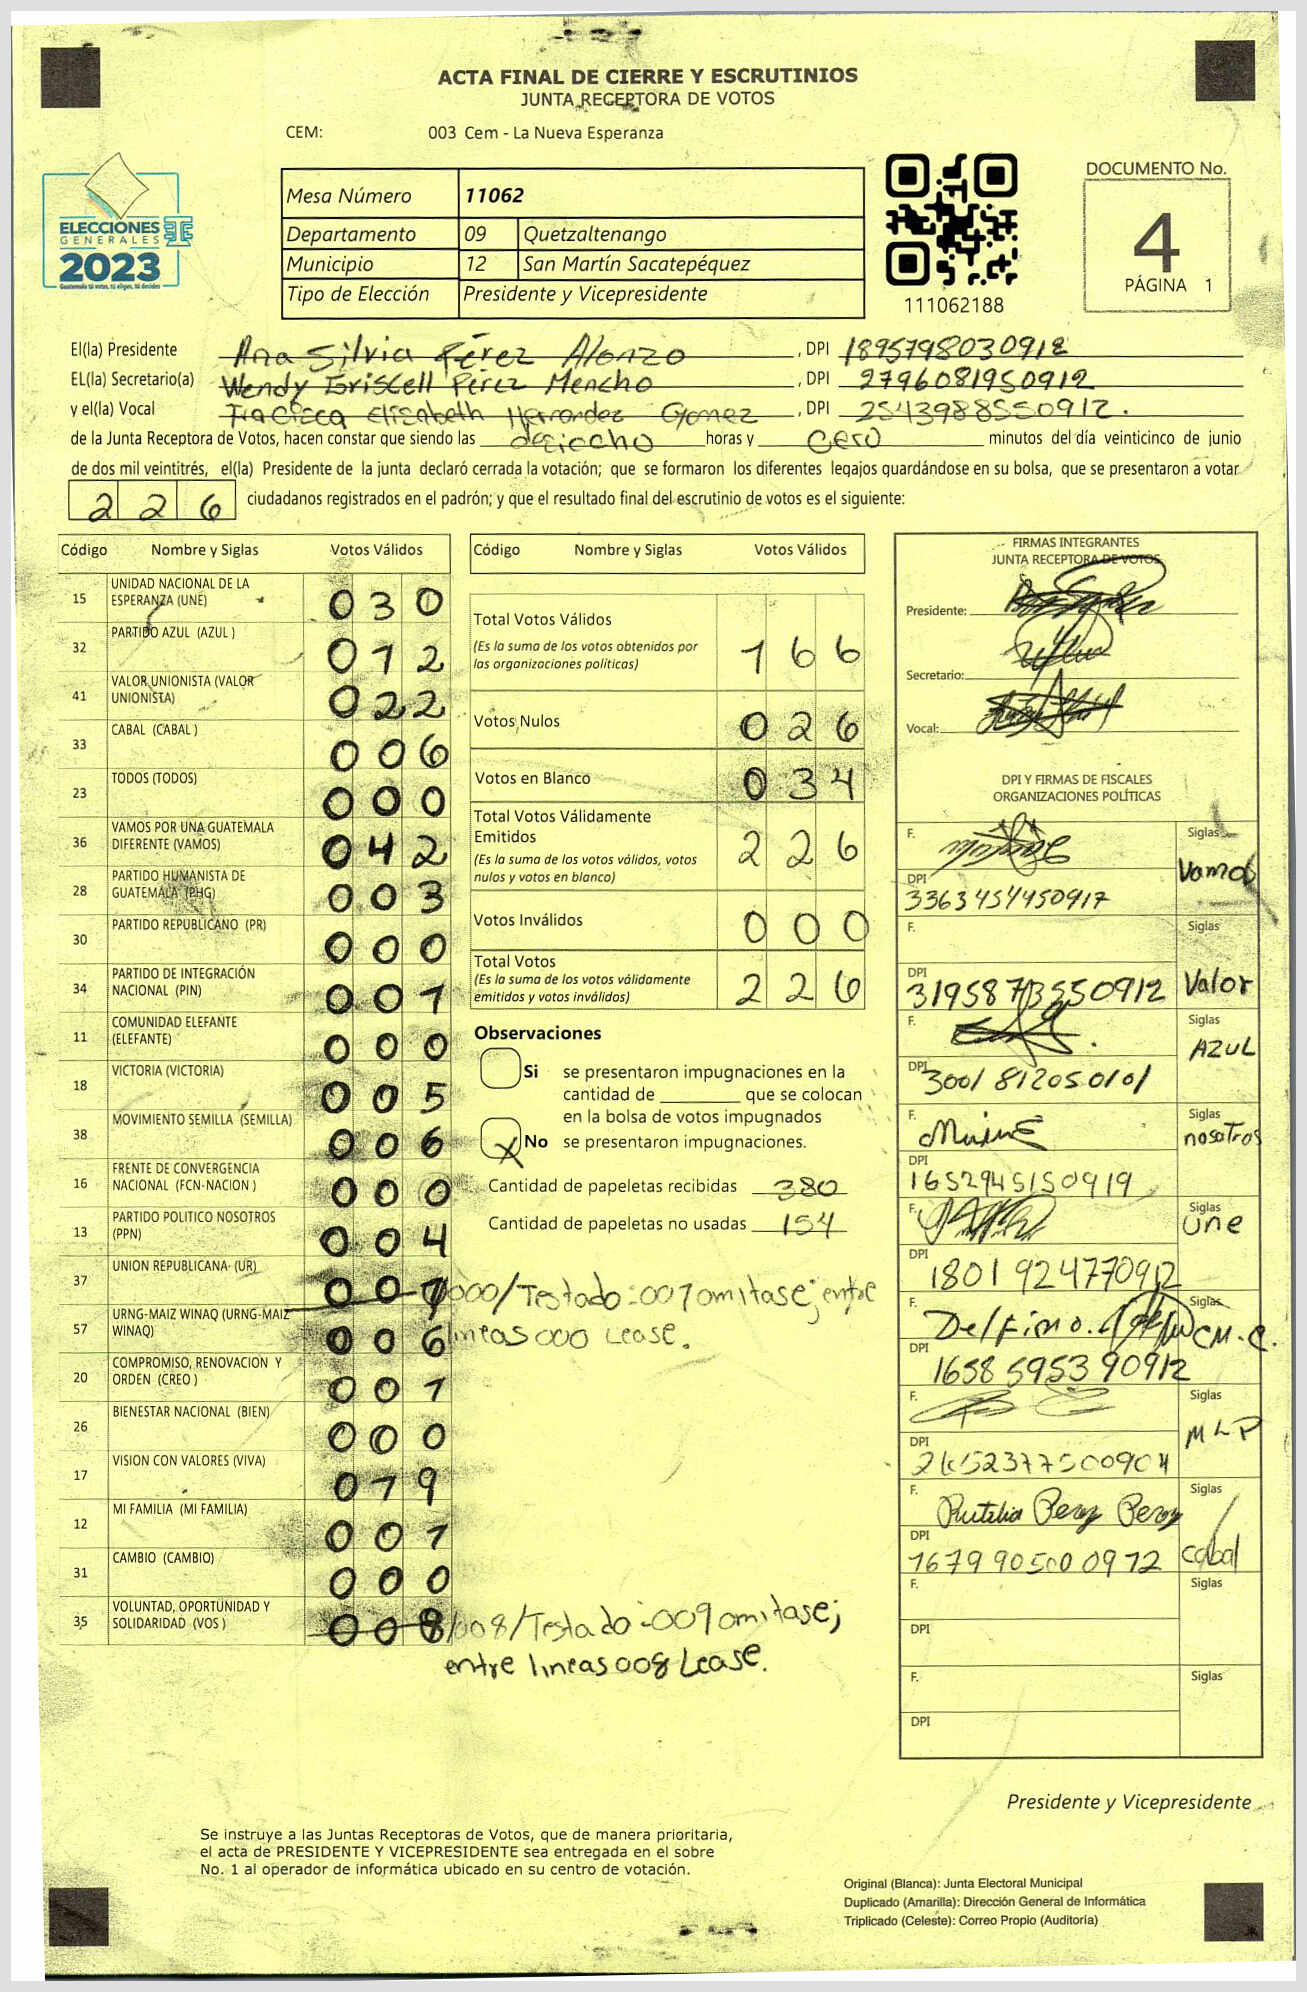 ACTA FINAL DE CIERRE Y ESCRUTINIOS
JUNTA RECEPTORA DE VOTOS
CEM: 003 Cem - La Nueva Esperanza
ELECCIONES
GENERALES
2023
Guatemala tú votas, tú eliges, tú decides
Mesa Número 11062
Departamento 09 Quetzaltenango
Municipio 12 San Martín Sacatepéquez
Tipo de Elección Presidente y Vicepresidente
111062188
DOCUMENTO No.
4
PÁGINA 1
El(la) Presidente Ana Silvia Pérez Alonzo , DPI 1895798030912
EL(la) Secretario(a) Wendy Griscell Pérez Mencho , DPI 2796081950912
y el(la) Vocal Elisabeth Hernandez Gomez , DPI 2543988550912.
de la Junta Receptora de Votos, hacen constar que siendo las horas y cero minutos del día veinticinco de junio
de dos mil veintitrés, el(la) Presidente de la junta declaró cerrada la votación; que se formaron los diferentes legajos guardándose en su bolsa, que se presentaron a votar
226 ciudadanos registrados en el padrón; y que el resultado final del escrutinio de votos es el siguiente:
Código Nombre y Siglas Votos Válidos
15 UNIDAD NACIONAL DE LA ESPERANZA (UNE) 030
32 PARTIDO AZUL (AZUL ) 012
41 VALOR UNIONISTA (VALOR UNIONISTA) 022
33 CABAL (CABAL ) 006
23 TODOS (TODOS) 000
36 VAMOS POR UNA GUATEMALA DIFERENTE (VAMOS) 042
28 PARTIDO HUMANISTA DE GUATEMALA (PHG) 003
30 PARTIDO REPUBLICANO (PR) 000
34 PARTIDO DE INTEGRACIÓN NACIONAL (PIN) 001
11 COMUNIDAD ELEFANTE (ELEFANTE) 000
18 VICTORIA (VICTORIA) 005
38 MOVIMIENTO SEMILLA (SEMILLA) 006
16 FRENTE DE CONVERGENCIA NACIONAL (FCN-NACION ) 000
13 PARTIDO POLITICO NOSOTROS (PPN) 004
37 UNION REPUBLICANA (UR) 001 /000/Testado:001 omitase; entre
lineas 000 Lease.
57 URNG-MAIZ WINAQ (URNG-MAIZ WINAQ) 006
20 COMPROMISO, RENOVACION Y ORDEN (CREO ) 001
26 BIENESTAR NACIONAL (BIEN) 000
17 VISION CON VALORES (VIVA) 019
12 MI FAMILIA (MI FAMILIA) 001
31 CAMBIO (CAMBIO) 000
35 VOLUNTAD, OPORTUNIDAD Y SOLIDARIDAD (VOS ) 008 /008/Testado:009 omitase;
entre lineas 008 Lease.
Código Nombre y Siglas Votos Válidos
Total Votos Válidos 166
(Es la suma de los votos obtenidos por
las organizaciones políticas)
Votos Nulos 026
Votos en Blanco 034
Total Votos Válidamente
Emitidos 226
(Es la suma de los votos válidos, votos
nulos y votos en blanco)
Votos Inválidos 000
Total Votos 226
(Es la suma de los votos válidamente
emitidos y votos inválidos)
Observaciones
Si se presentaron impugnaciones en la
cantidad de ________ que se colocan
en la bolsa de votos impugnados
X No se presentaron impugnaciones.
Cantidad de papeletas recibidas 380
Cantidad de papeletas no usadas 154
FIRMAS INTEGRANTES
JUNTA RECEPTORA DE VOTOS
Presidente:
Secretario:
Vocal:
DPI Y FIRMAS DE FISCALES
ORGANIZACIONES POLÍTICAS
F. Siglas Vamos
DPI 3363454450917
F. Siglas Valor
DPI 3195873550912
F. Siglas AZUL
DPI 3001812050101
F. Siglas nosotros
DPI 1652945150919
F. Siglas Une
DPI 1801924770912
F. Delfino. Siglas CM.C.
DPI 1658595390912
F. Siglas MLP
DPI 2652377500904
F. Rutilia Perez Perez Siglas cabal
DPI 1679905000912
F. Siglas
DPI
F. Siglas
DPI
Presidente y Vicepresidente
Se instruye a las Juntas Receptoras de Votos, que de manera prioritaria,
el acta de PRESIDENTE Y VICEPRESIDENTE sea entregada en el sobre
No. 1 al operador de informática ubicado en su centro de votación.
Original (Blanca): Junta Electoral Municipal
Duplicado (Amarilla): Dirección General de Informática
Triplicado (Celeste): Correo Propio (Auditoría)